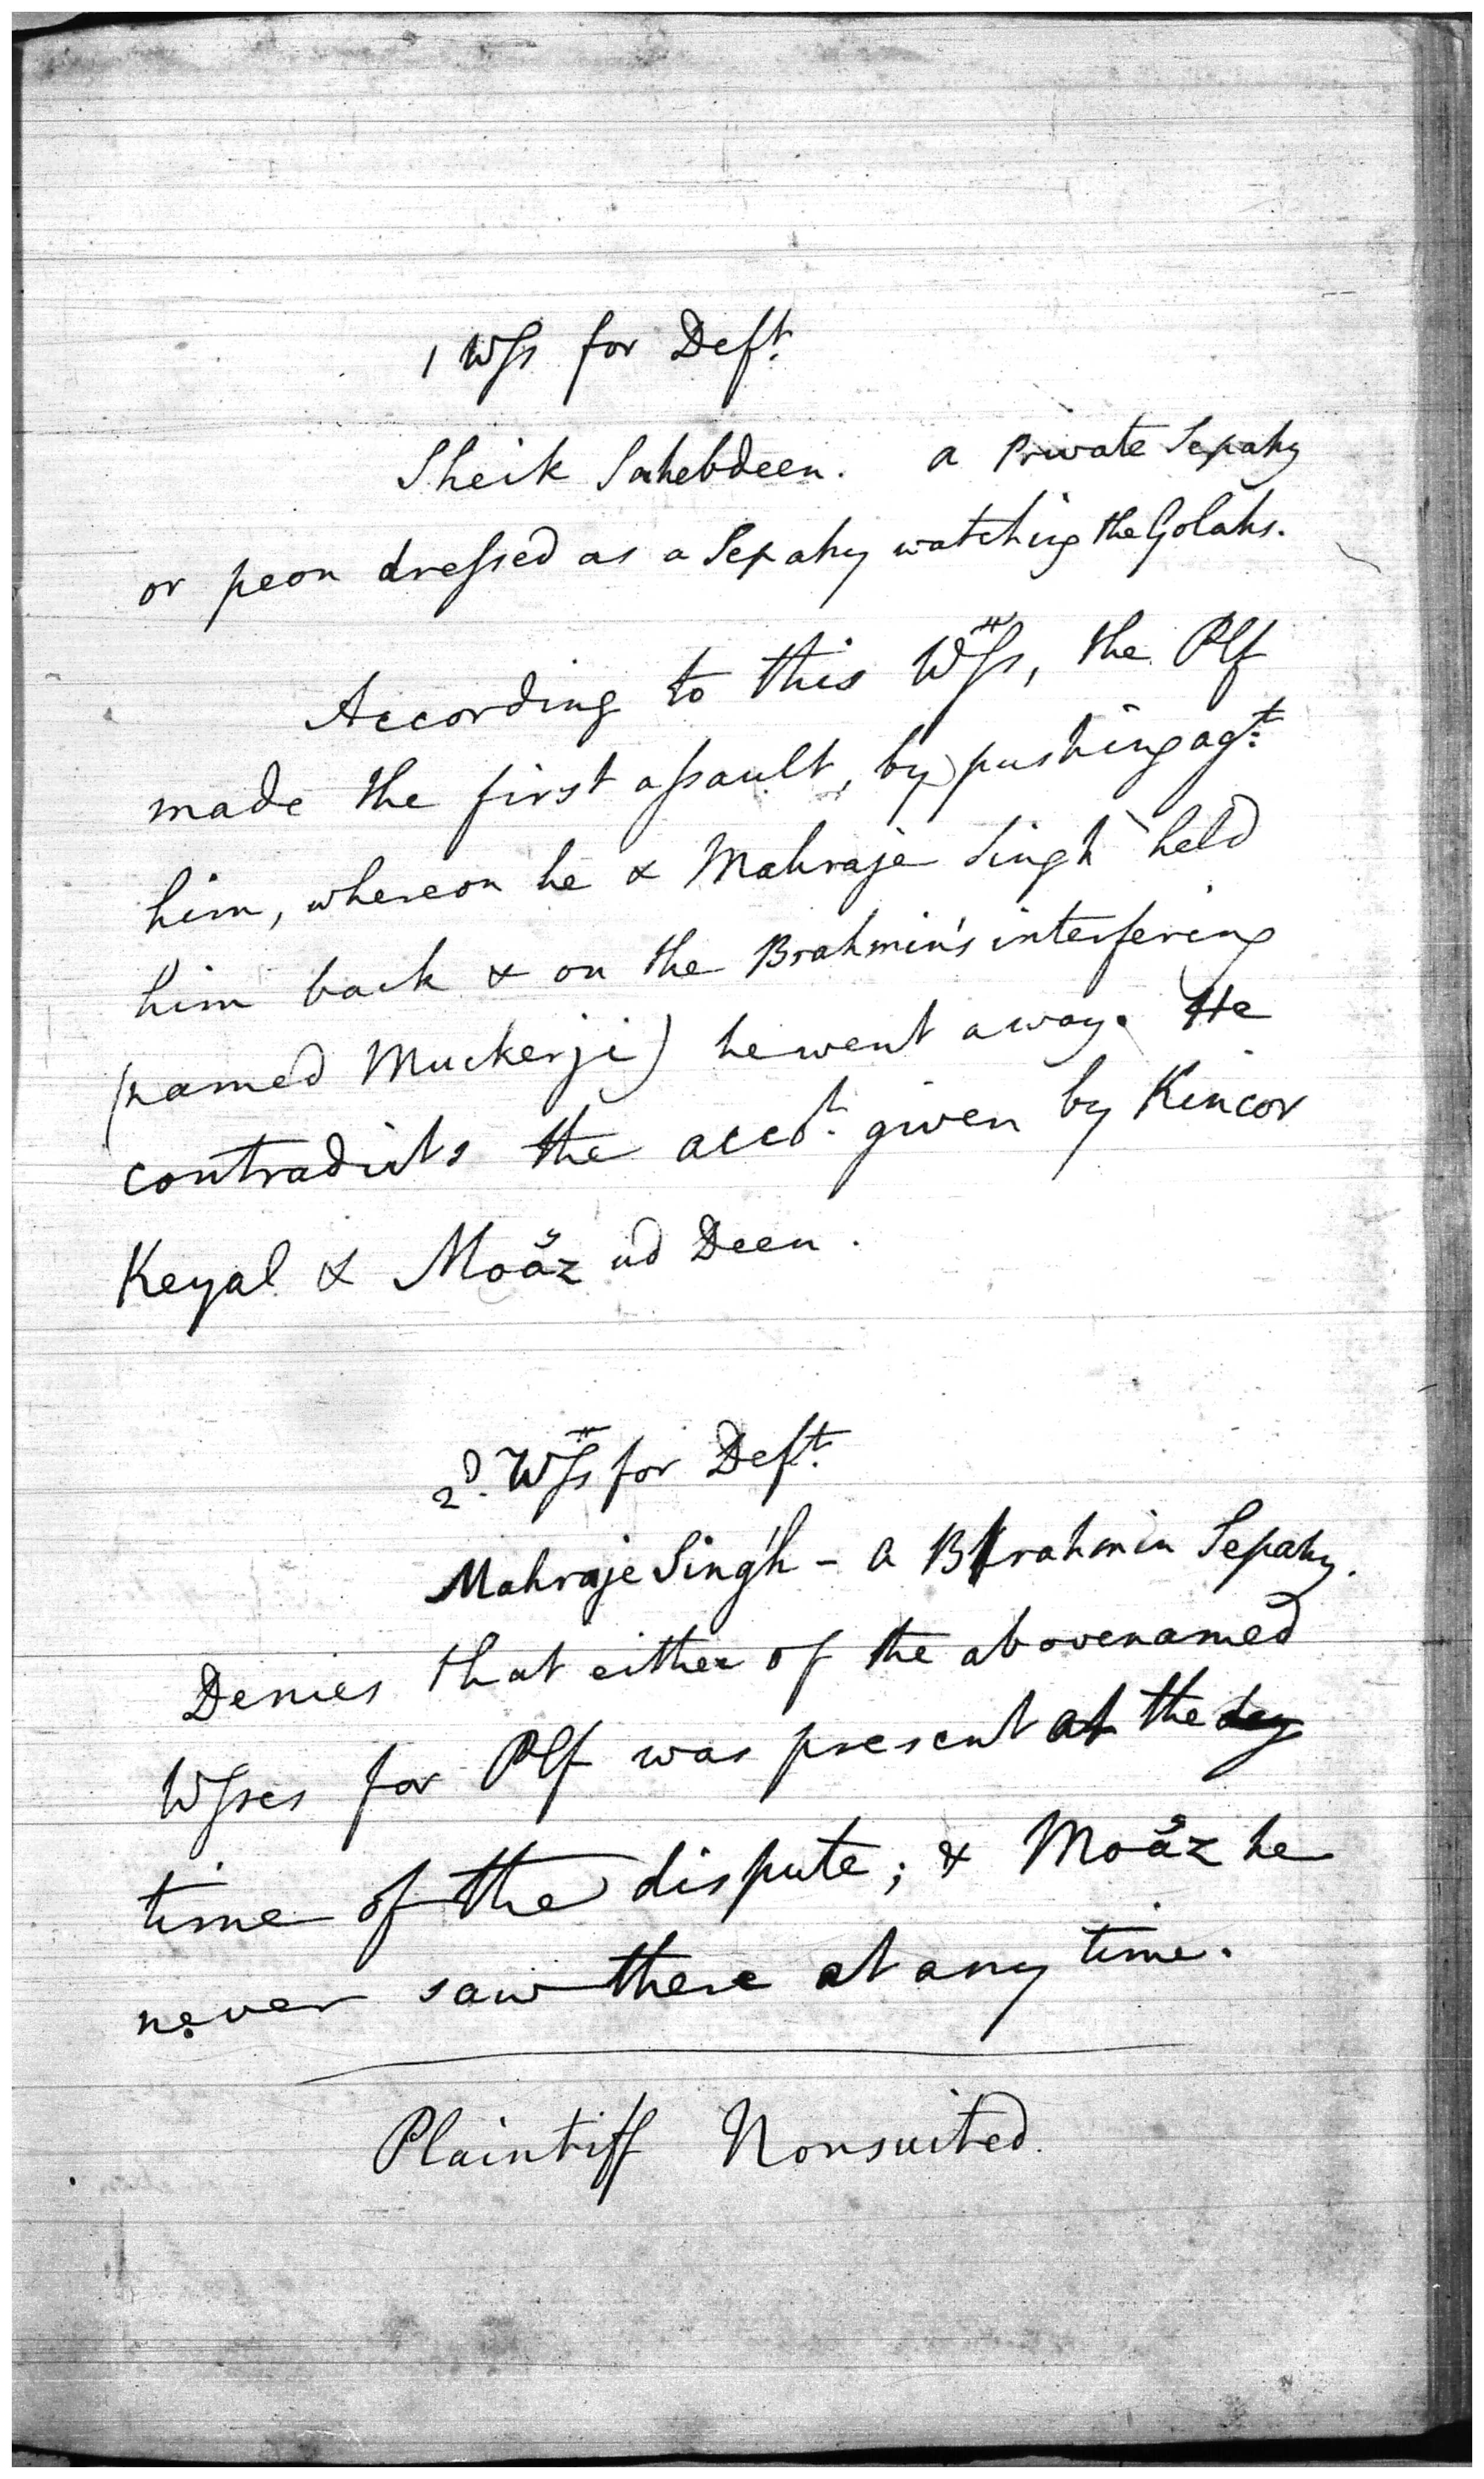 1 Wſs for Deft.
Sheik Sahebdeen. a Private Sepahy
or peon dreſsed as a Sepahy watching the Golahs.
According to this Wſs, the Plf
made the first aſsault, by pushing agt.
him, whereon he & Mahraje Singh held
him back & on the Brahmin's interfering
(named Muckerji) he went away. He
contradicts the acct. given by Kincor
Keyal & Moäz ud Deen.
2d. Wſs for Deft.
Mahraje Singh - a Brahmin Sepahy.
Denies that either of the abovenamed
Wſses for Plf was present at the day
time of the dispute; & Moäz he
never saw there at any time.
Plaintiff Nonsuited.